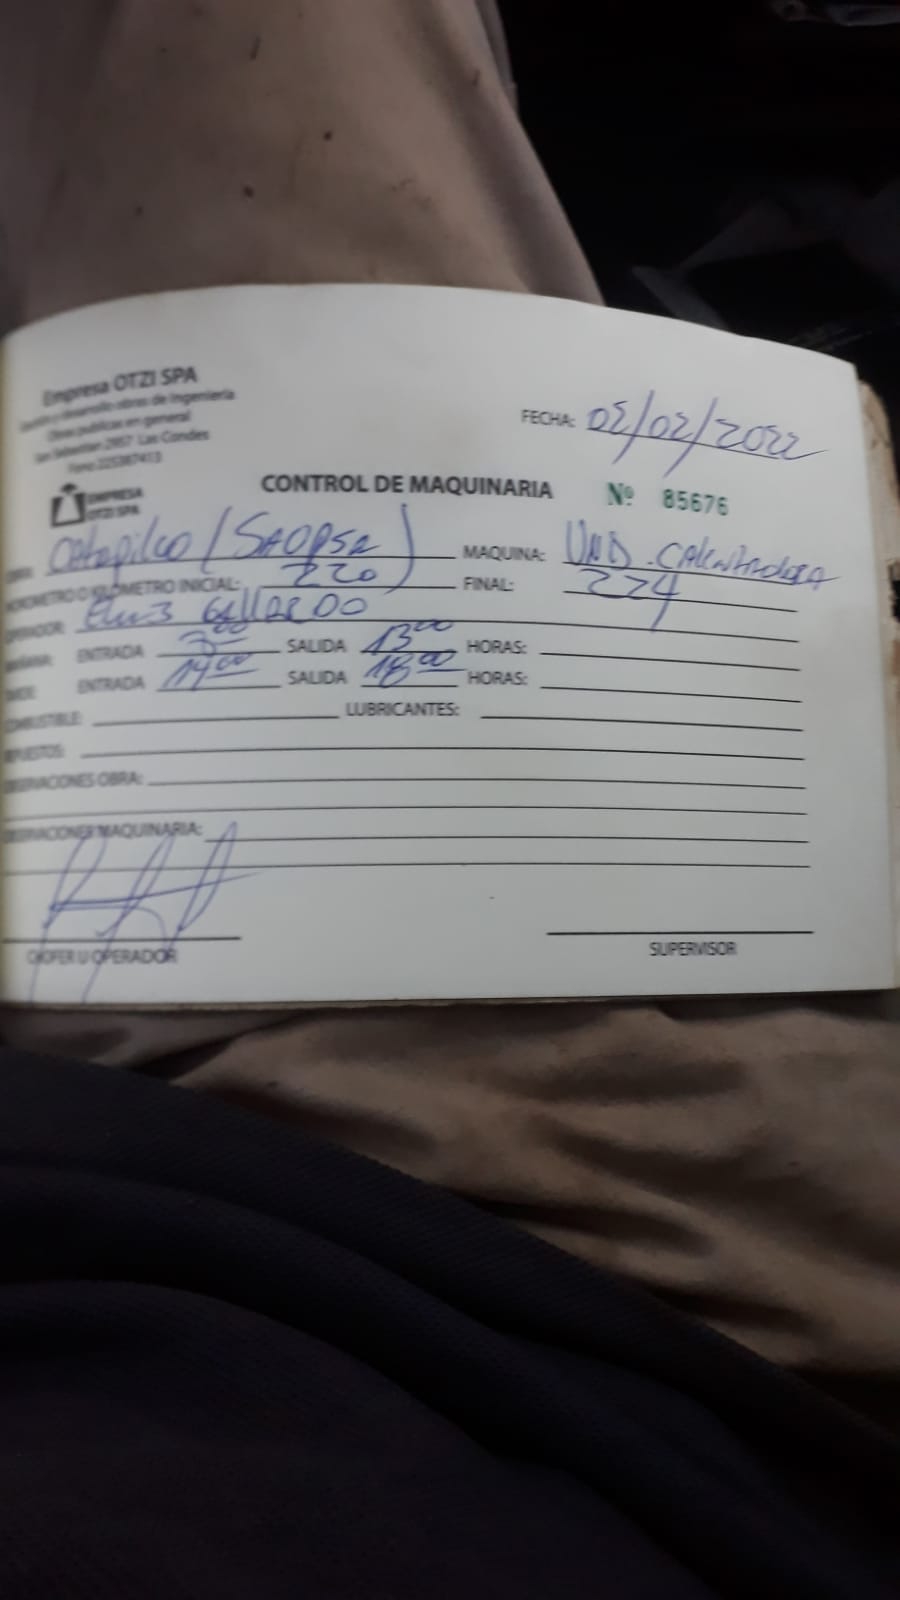 Empresa OTZI SPA
desarrollo obras de Ingeniería
Obras publicas en general
San Sebastian 2957 Las Condes
Fono: 225387413
FECHA: 02/02/2022
CONTROL DE MAQUINARIA Nº 85676
EMPRESA
OTZI SPA
OBRA: Catapilco (SAOPSA) MAQUINA: UND. CAlentadora
HOROMETRO O KILOMETRO INICIAL: 220 FINAL: 224
OPERADOR: GALLARDO
MAÑANA: ENTRADA SALIDA 13 00 HORAS:
TARDE: ENTRADA 14 00 SALIDA 18 00 HORAS:
COMBUSTIBLE: LUBRICANTES:
REPUESTOS:
OBSERVACIONES OBRA:
OBSERVACIONES MAQUINARIA:
CHOFER U OPERADOR SUPERVISOR